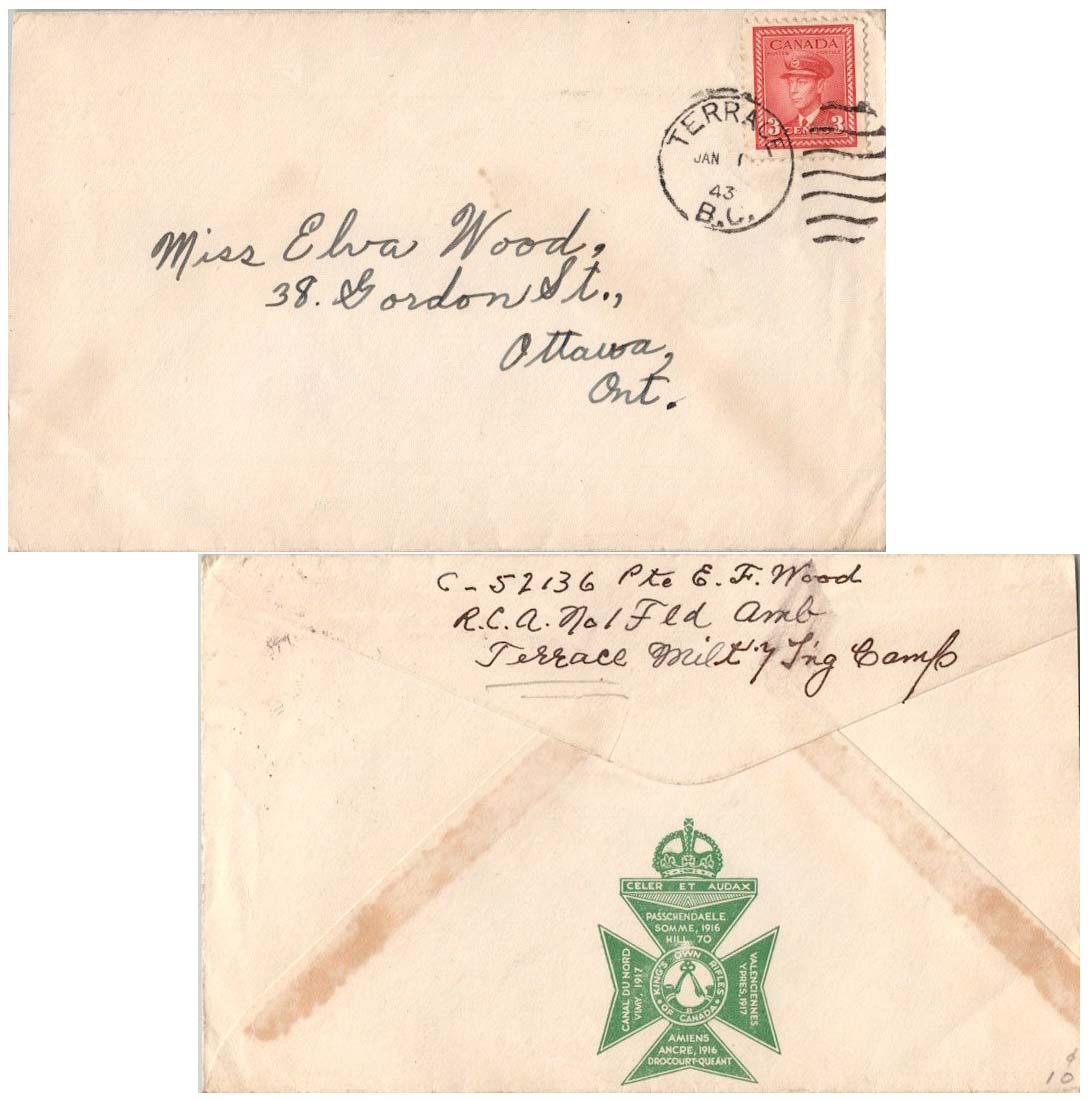 CANADA
POSTES POSTAGE
3 CENTS 3
TERRACE
JAN 1
43
B.C.
Miss Elva Wood,
38. Gordon St.,
Ottawa,
Ont.
C-52136 Pte E. F. Wood
R.C.A. No 1 Fld Amb
Terrace Milt'y T'ng Camp
CELER ET AUDAX
PASSCHENDAELE
SOMME, 1916
HILL 70
CANAL DU NORD
VIMY, 1917
KING'S OWN RIFLES
OF CANADA
VALENCIENNES
YPRES, 1917
AMIENS
ANCRE, 1916
DROCOURT-QUEANT
10¢